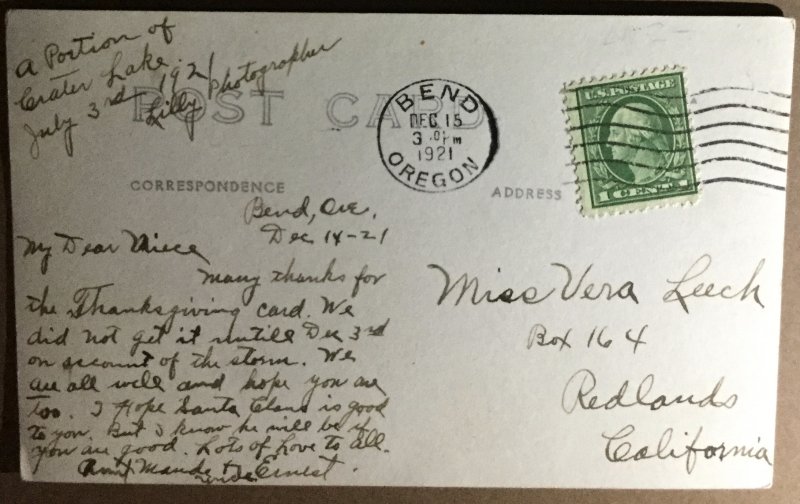 A Portion of
Crater Lake.
July 3rd 1921
Lilly photographer
POST CARD
BEND
DEC 15
3 PM
1921
OREGON
U.S. POSTAGE
CENTS
CORRESPONDENCE
ADDRESS
Bend, Ore,
Dec 14-21
My Dear Niece
Many thanks for
the Thanksgiving card. We
did not get it untill Dec 3rd
on account of the storm. We
are all well and hope you are
too. I Hope Santa Claus is good
to you. But I know he will be if
you are good. Lots of Love to all.
Aunt Maude & Ernest.
Miss Vera Leech
Box 164
Redlands
California